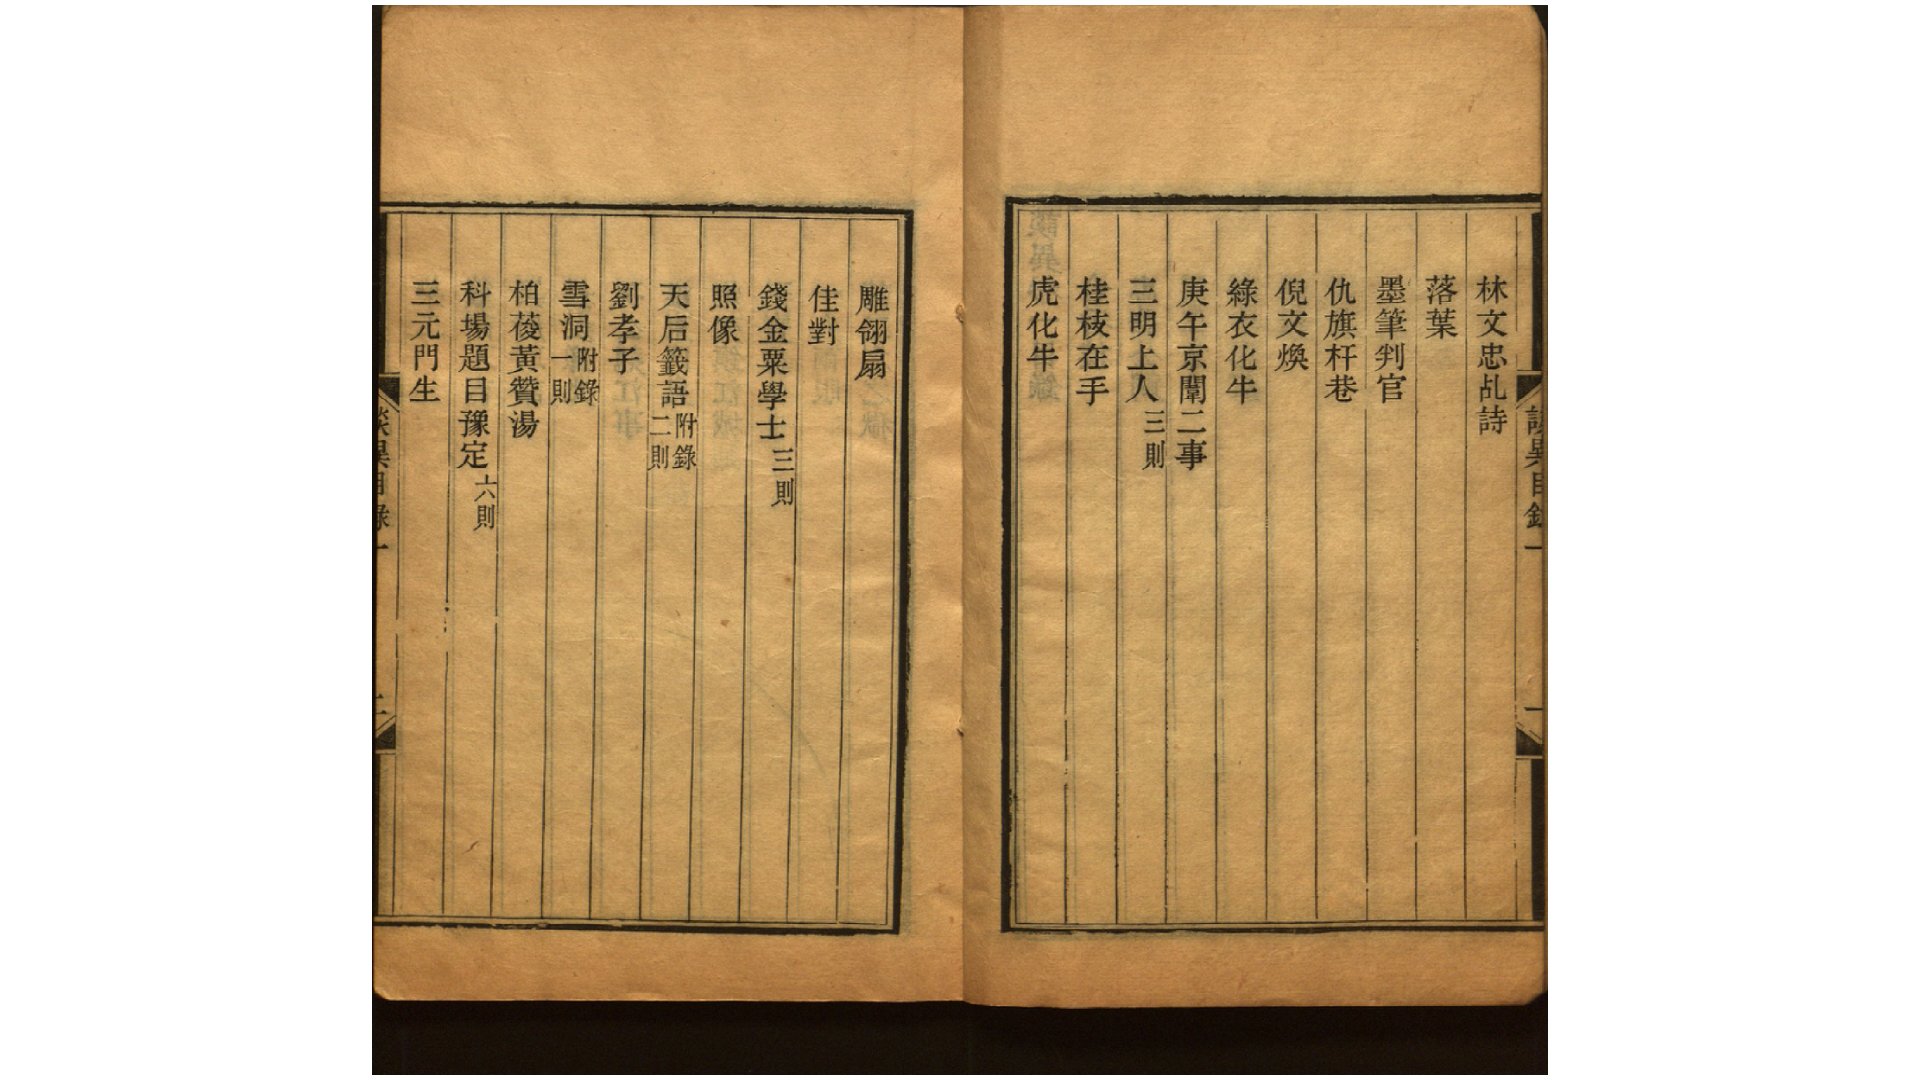 林文忠乩詩
落葉
墨筆判官
仇旗杆巷
倪文煥
綠衣化牛
庚午京闈二事
三明上人三則
桂枝在手
虎化牛
雕翎扇
佳對
錢金粟學士三則
照像
天后籤語附錄二則
劉孝子
雪洞附錄一則
柏葰黃贊湯
科場題目豫定六則
三元門生
談異目錄一